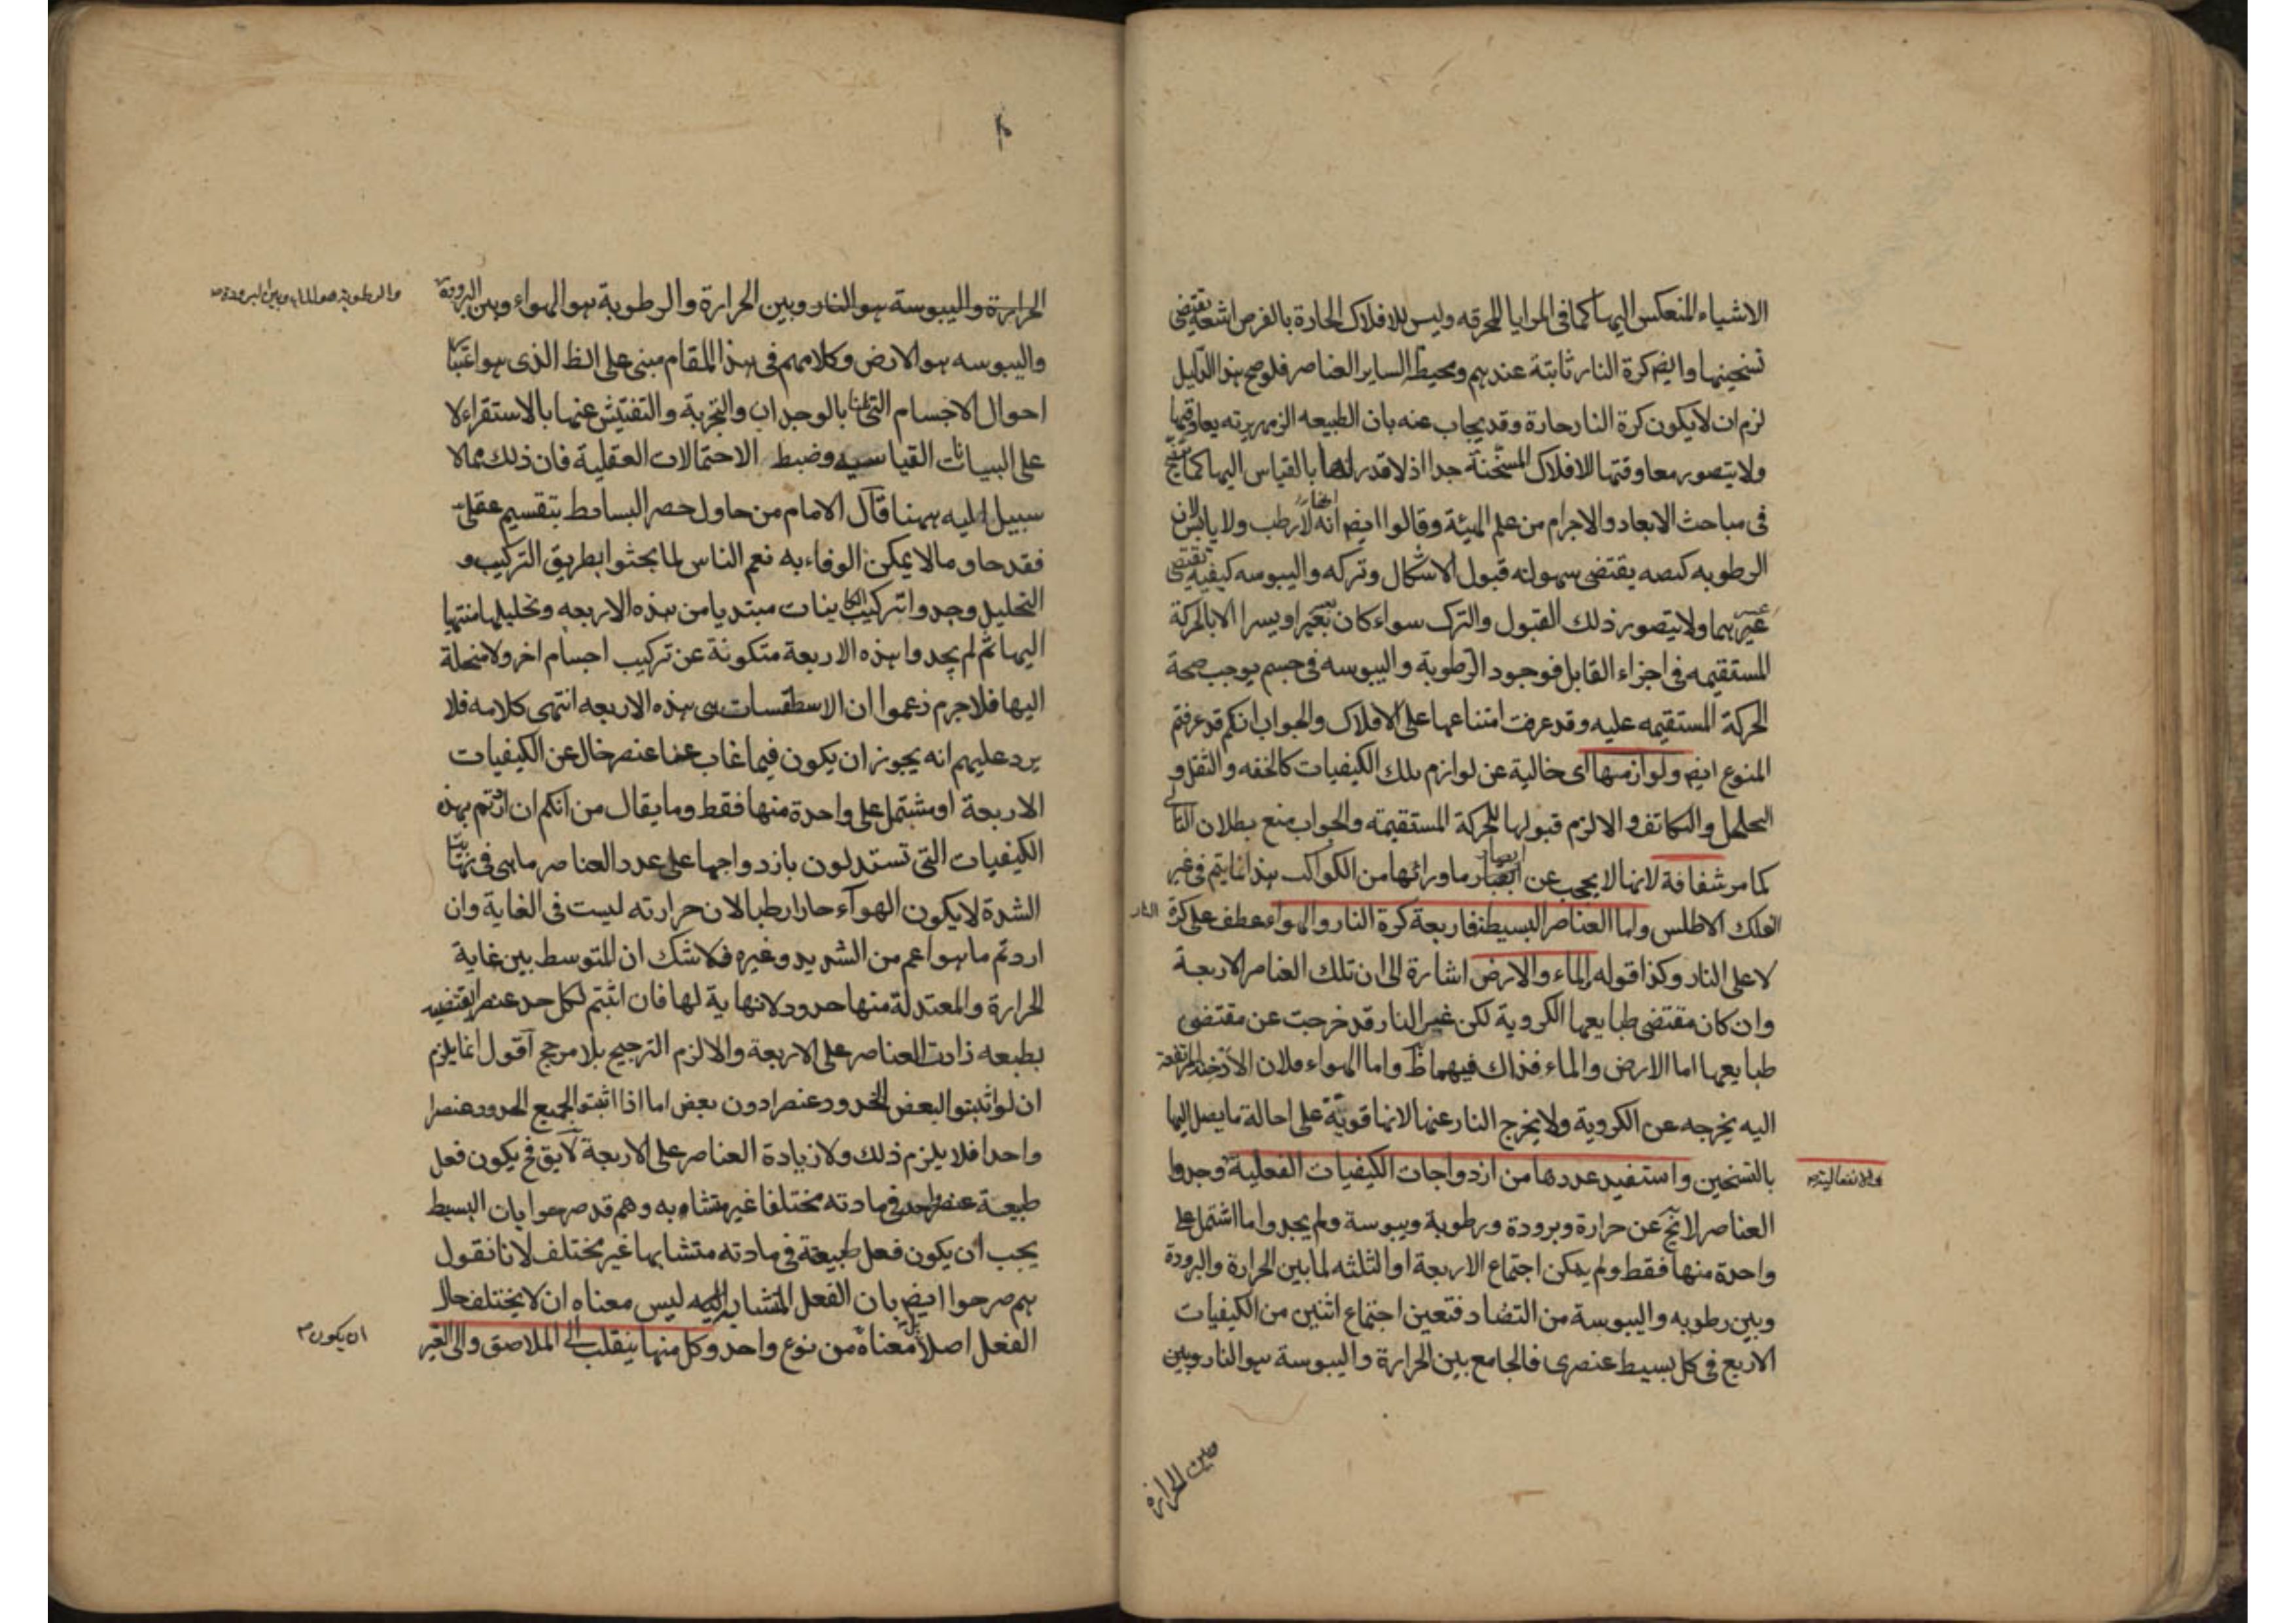 الاشياء المنعكس اليها كما في المرايا المحرقه وليس للافلاك الحارة بالفرض اشعة تقتضى
تسخينها وايضا كرة النار ثابتة عندهم ومحيطة لساير العناصر فلو صح هذا الدليل
لزم ان لا يكون كرة النار حارة وقد يجاب عنه بان الطبيعه الزمهريرته يعاوقها
ولا يتصور معاوقتها للافلاك المسخنة جدا اذ لا قدر لها بالقياس اليها كما
فى مباحث الابعاد والاجرام من علم الهيئة وقالوا ايضا انها لا رطب ولا يابس لان
الرطوبه يقتضى سهولة قبول الاشكال وتركه واليبوسه كيفية تقتضى
عسرهما ولا يتصور ذلك القبول والترك سواء كان بعسر او يسر الا بالحركة
المستقيمه فى اجزاء القابل فوجود الرطوبة واليبوسه فى جسم يوجب صحة
الحركة المستقيمه عليه وقد عرفت امتناعها على الافلاك والجواب انكم قد عرفتم
المنوع ايضا ولوازمها اى خالية عن لوازم تلك الكيفيات كالخفه والثقل و
التخلخل والتكاثف والا لزم قبولها للحركة المستقيمه والجواب منع بطلان التالى
كما مر شفافة لانها لا يحجب عن ابصار ما ورائها من الكواكب هذا انما يتم فى غير
الفلك الاطلس واما العناصر البسيطة فاربعة كرة النار والهواء عطف على كرة النار
لا على النار وكذا قوله والماء والارض اشارة الى ان تلك العناصر الاربعة
وان كان مقتضى طبايعها الكروية لكن غير النار قد خرجت عن مقتضى
طبايعها اما الارض والماء فذاك فيهما ظ واما الهواء فلان الادخنة المرتفعة
اليه يخرجه عن الكروية ولا يخرج النار عنها لانها قوية على احالة ما يصل اليها
بالتسخين واستفيد عددها من ازدواجات الكيفيات الفعلية وجدوا
والانفعالية
العناصر لا تخ عن حرارة وبرودة ورطوبة ويبوسة ولم يجدوا ما اشتمل على
واحدة منها فقط ولم يمكن اجتماع الاربعة او الثلثه لما بين الحرارة والبرودة
وبين رطوبه واليبوسة من التضاد فتعين اجتماع اثنين من الكيفيات
الاربع فى كل بسيط عنصرى فالجامع بين الحرارة واليبوسة هو النار وبين
الحرارة واليبوسة هو النار وبين الحرارة والرطوبة هو الهواء وبين البرودة
والرطوبة هو الماء وبين البرودة
واليبوسه هو الارض وكلامهم فى هذا المقام مبنى على الظ الذى هو اعتبار
احوال الاجسام التى بالوجدان والتجربة والتفتيش عنها بالاستقراء لا
على البيانات القياسيه وضبط الاحتمالات العقلية فان ذلك مما لا
سبيل اليه ههنا قال الامام من حاول حصر البسائط بتقسيم عقلى
فقد حاول ما لا يمكن الوفاء به نعم الناس لما بحثوا بطريق التركيب و
التحليل وجدوا تركيب الكاينات مبتديا من هذه الاربعه وتحليلها منتهيا
اليها ثم لم يجدوا هذه الاربعة متكونة عن تركيب اجسام اخر ولا منحلة
اليها فلا جرم زعموا ان الاسطقسات هى هذه الاربعه انتهى كلامه فلا
يرد عليهم انه يجوز ان يكون فيما غاب عنا عنصر خال عن الكيفيات
الاربعة او مشتمل على واحدة منها فقط وما يقال من انكم ان اردتم بهذه
الكيفيات التى تستدلون بازدواجها على عدد العناصر ما هى فى
الشدة لا يكون الهوآء حارا رطبا لان حرارته ليست فى الغاية وان
اردتم ما هو اعم من الشديد وغيره فلا شك ان المتوسط بين غاية
الحرارة والمعتدلة منها حدود لا نهاية لها فان اثبتم لكل حد عنصرا يقتضيه
بطبعه زادت العناصر على الاربعة والا لزم الترجيح بلا مرجح اقول انما يلزم
ان لو اثبتوا لبعض الحدود عنصرا دون بعض اما اذا اثبتوا لجميع الحدود عنصرا
واحدا فلا يلزم ذلك ولا زيادة العناصر على الاربعة لا يق فح يكون فعل
طبيعة عنصر واحد فى مادته مختلفا غير متشابه وهم قد صرحوا بان البسيط
يجب ان يكون فعل طبيعته فى مادته متشابها غير مختلف لانا نقول
هم صرحوا ايضا بان الفعل المتشابه ليس معناه ان لا يختلف حال
الفعل اصلا بل معناه من نوع واحد وكل منها ينقلب الى الملاصق والى الغير
ان يكون